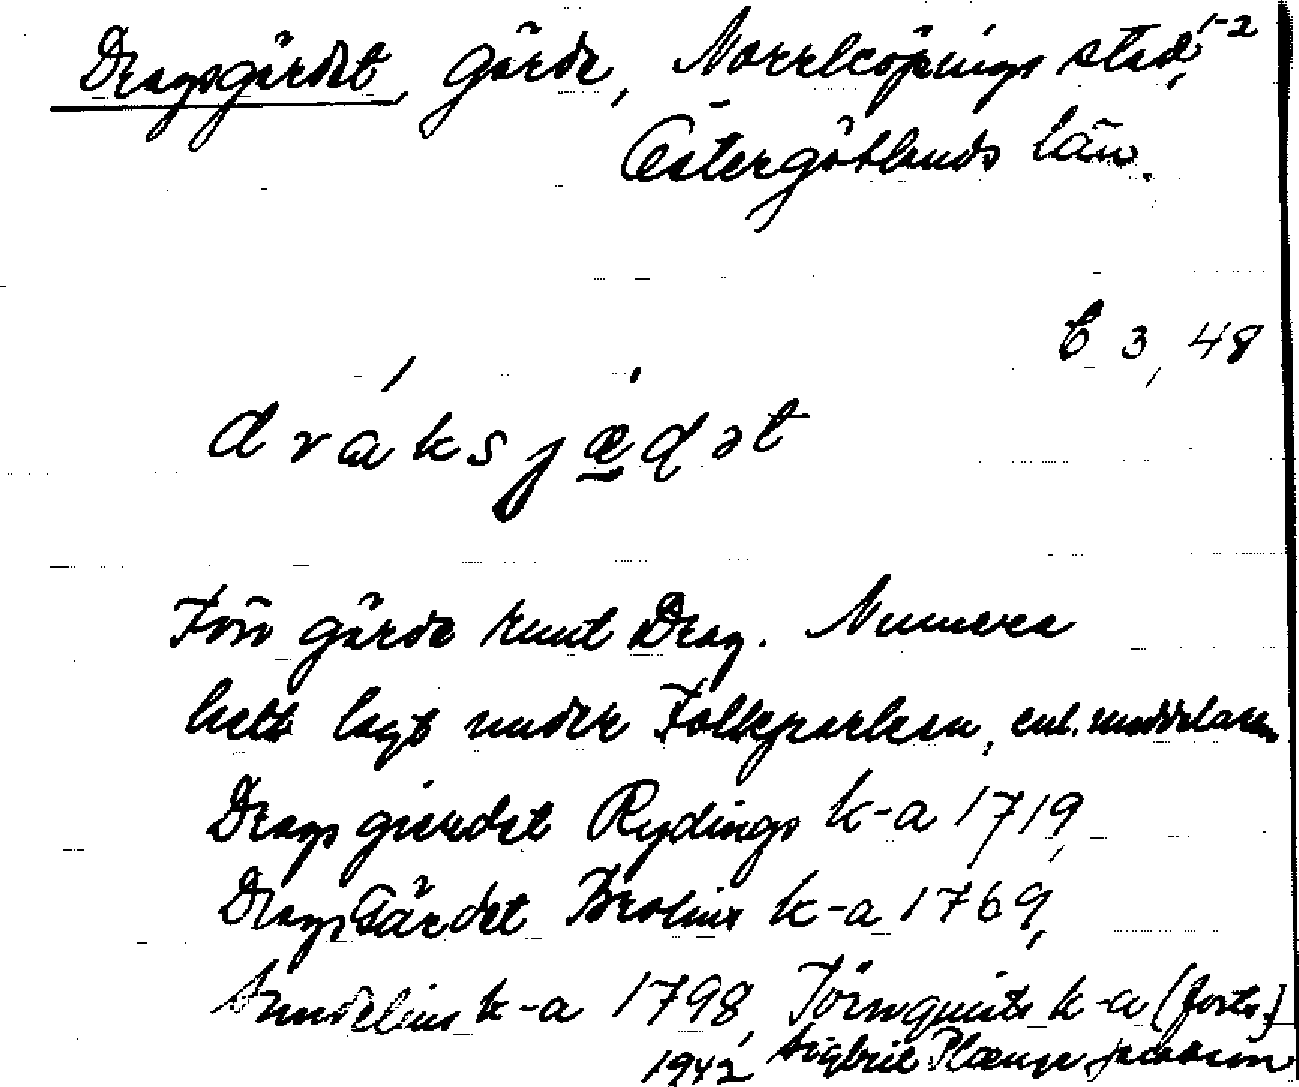 Dragsgärdet, gärde, Norrköpings stad, 1-2
Östergötlands län.
C 3, 48
dráksjæ̱dət
Förr gärde kunt Drag. Numera
helt lagt under Folkparken, enl. meddelaren
Drags gierdet Rydings k-a 1719,
Drags Gärdet Brolins k-a 1769,
Sundelius k-a 1798, Törnquists k-a (forts.)
1942 Sigbrit Plænge Jacobson